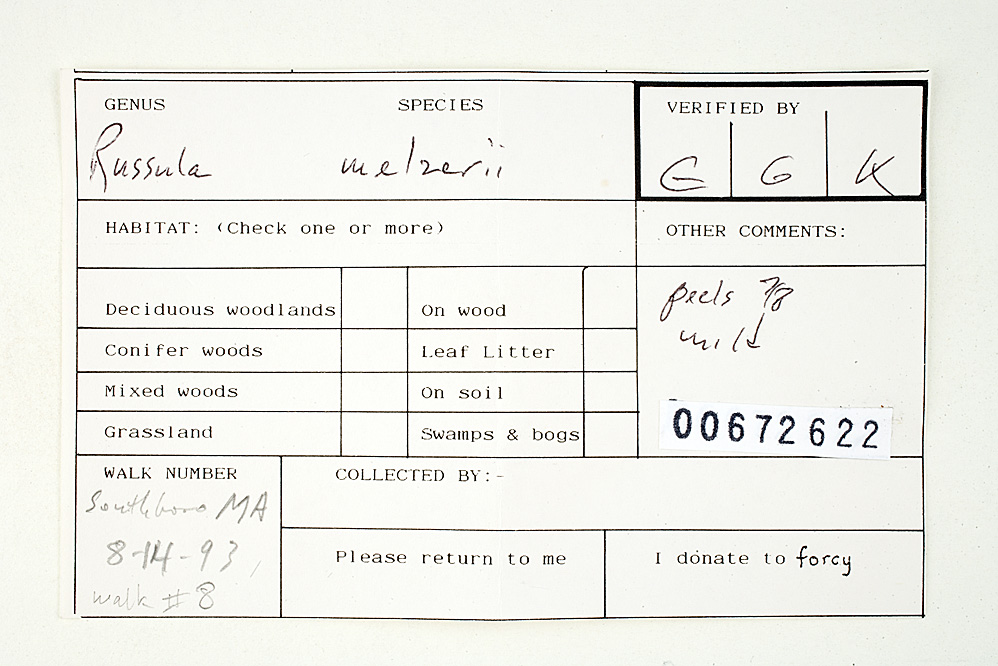 GENUS SPECIES
Russula melzerii
VERIFIED BY
E G K
HABITAT: (Check one or more)
OTHER COMMENTS:
peels 7/8
mild
Deciduous woodlands On wood
Conifer woods Leaf Litter
Mixed woods On soil
Grassland Swamps & bogs
00672622
WALK NUMBER
Southboro MA
8-14-93,
walk # 8
COLLECTED BY:-
Please return to me
I donate to forcy